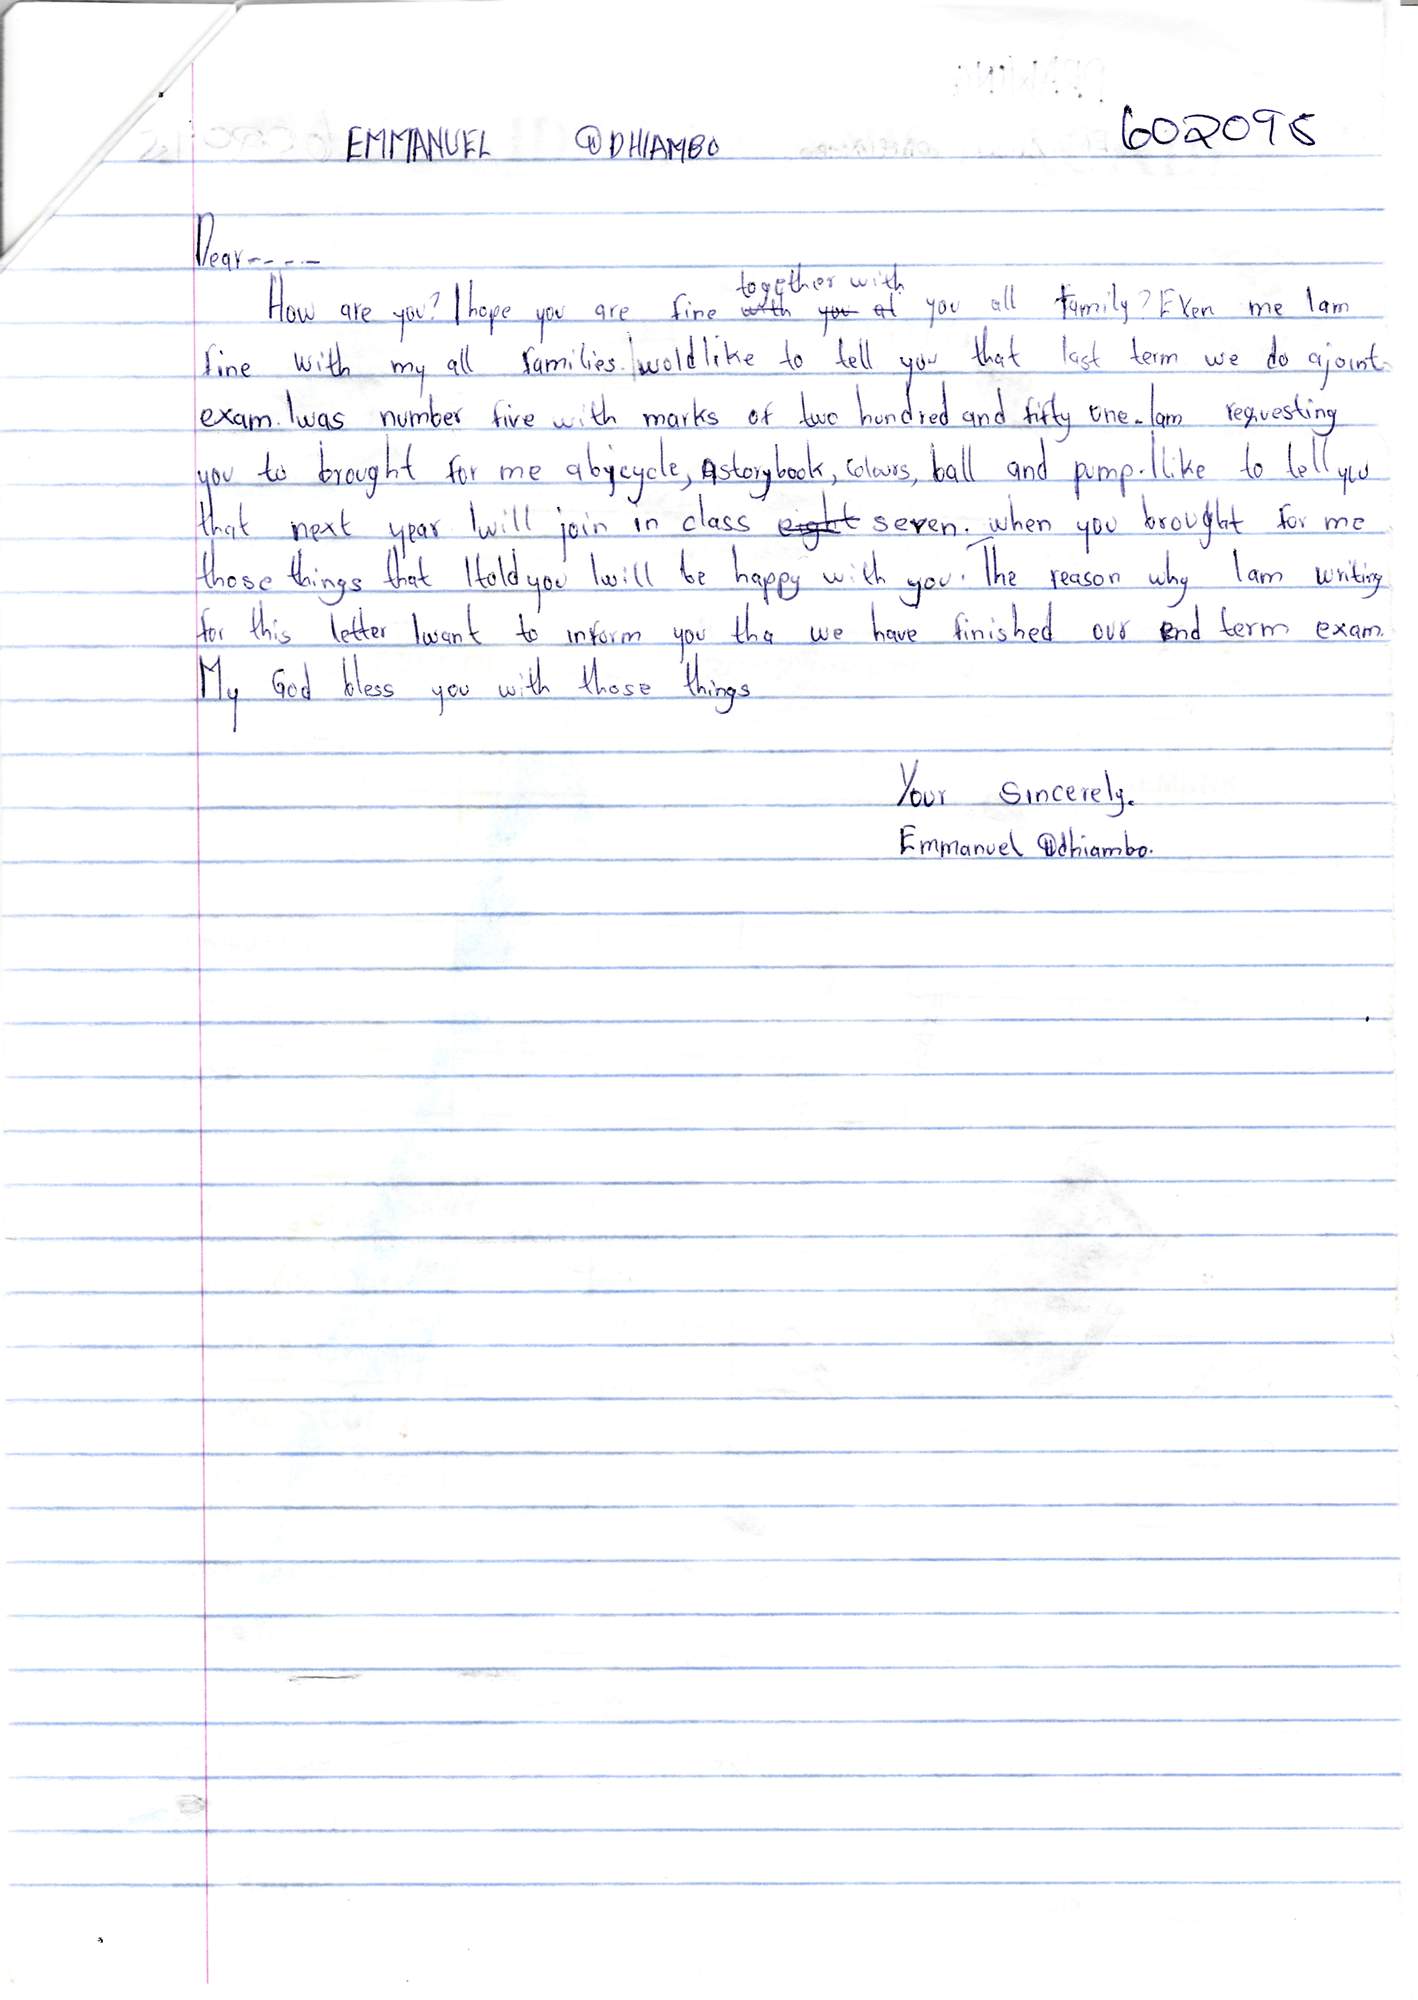 EMMANUEL ODHIAMBO 602095
Dear-----
together with
How are you? I hope you are fine with you at you all family? Even me Iam
fine with my all families. I wold like to tell you that last term we do ajoint
exam. I was number five with marks of two hundred and fifty one. Iam requesting
you to brought for me abycycle, Astorybook, colours, ball and pump. I like to tell you
that next year I will join in class eight seven. when you brought for me
those things that I told you I will be happy with you. The reason why Iam writing
for this letter I want to inform you tha we have finished our end term exam.
My God bless you with those things
Your Sincerely.
Emmanuel Odhiambo.